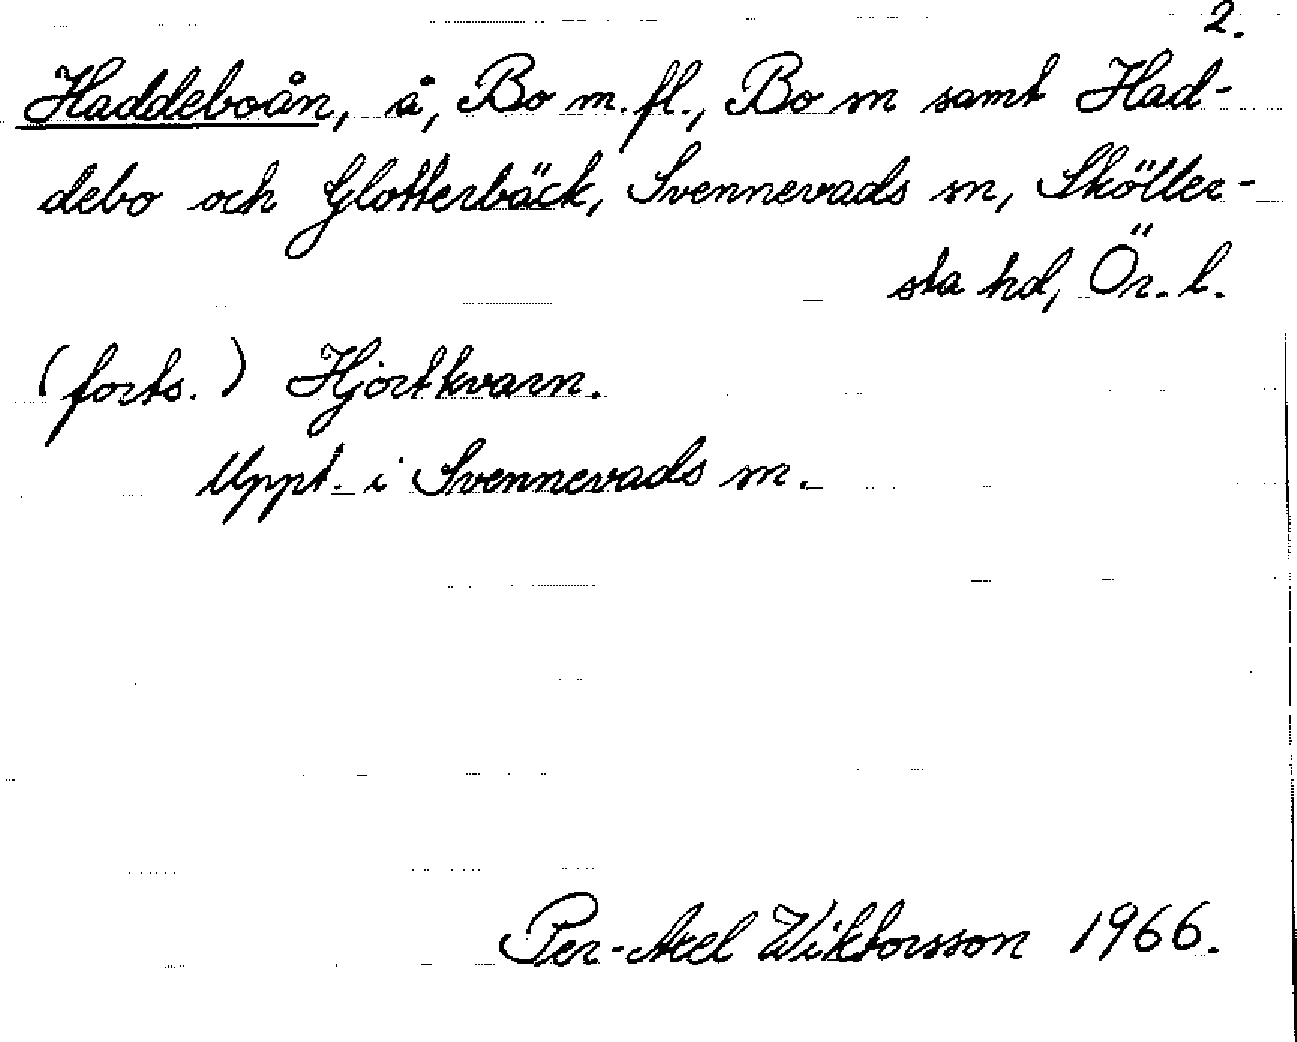 2.
Haddeboån, å, Bo m.fl., Bo sn samt Had-
debo och Glotterbäck, Svennevads sn, Sköller-
sta hd, Ör. l.
(forts.) Hjortkvarn.
Uppt. i Svennevads sn.
Per-Axel Wiktorsson 1966.